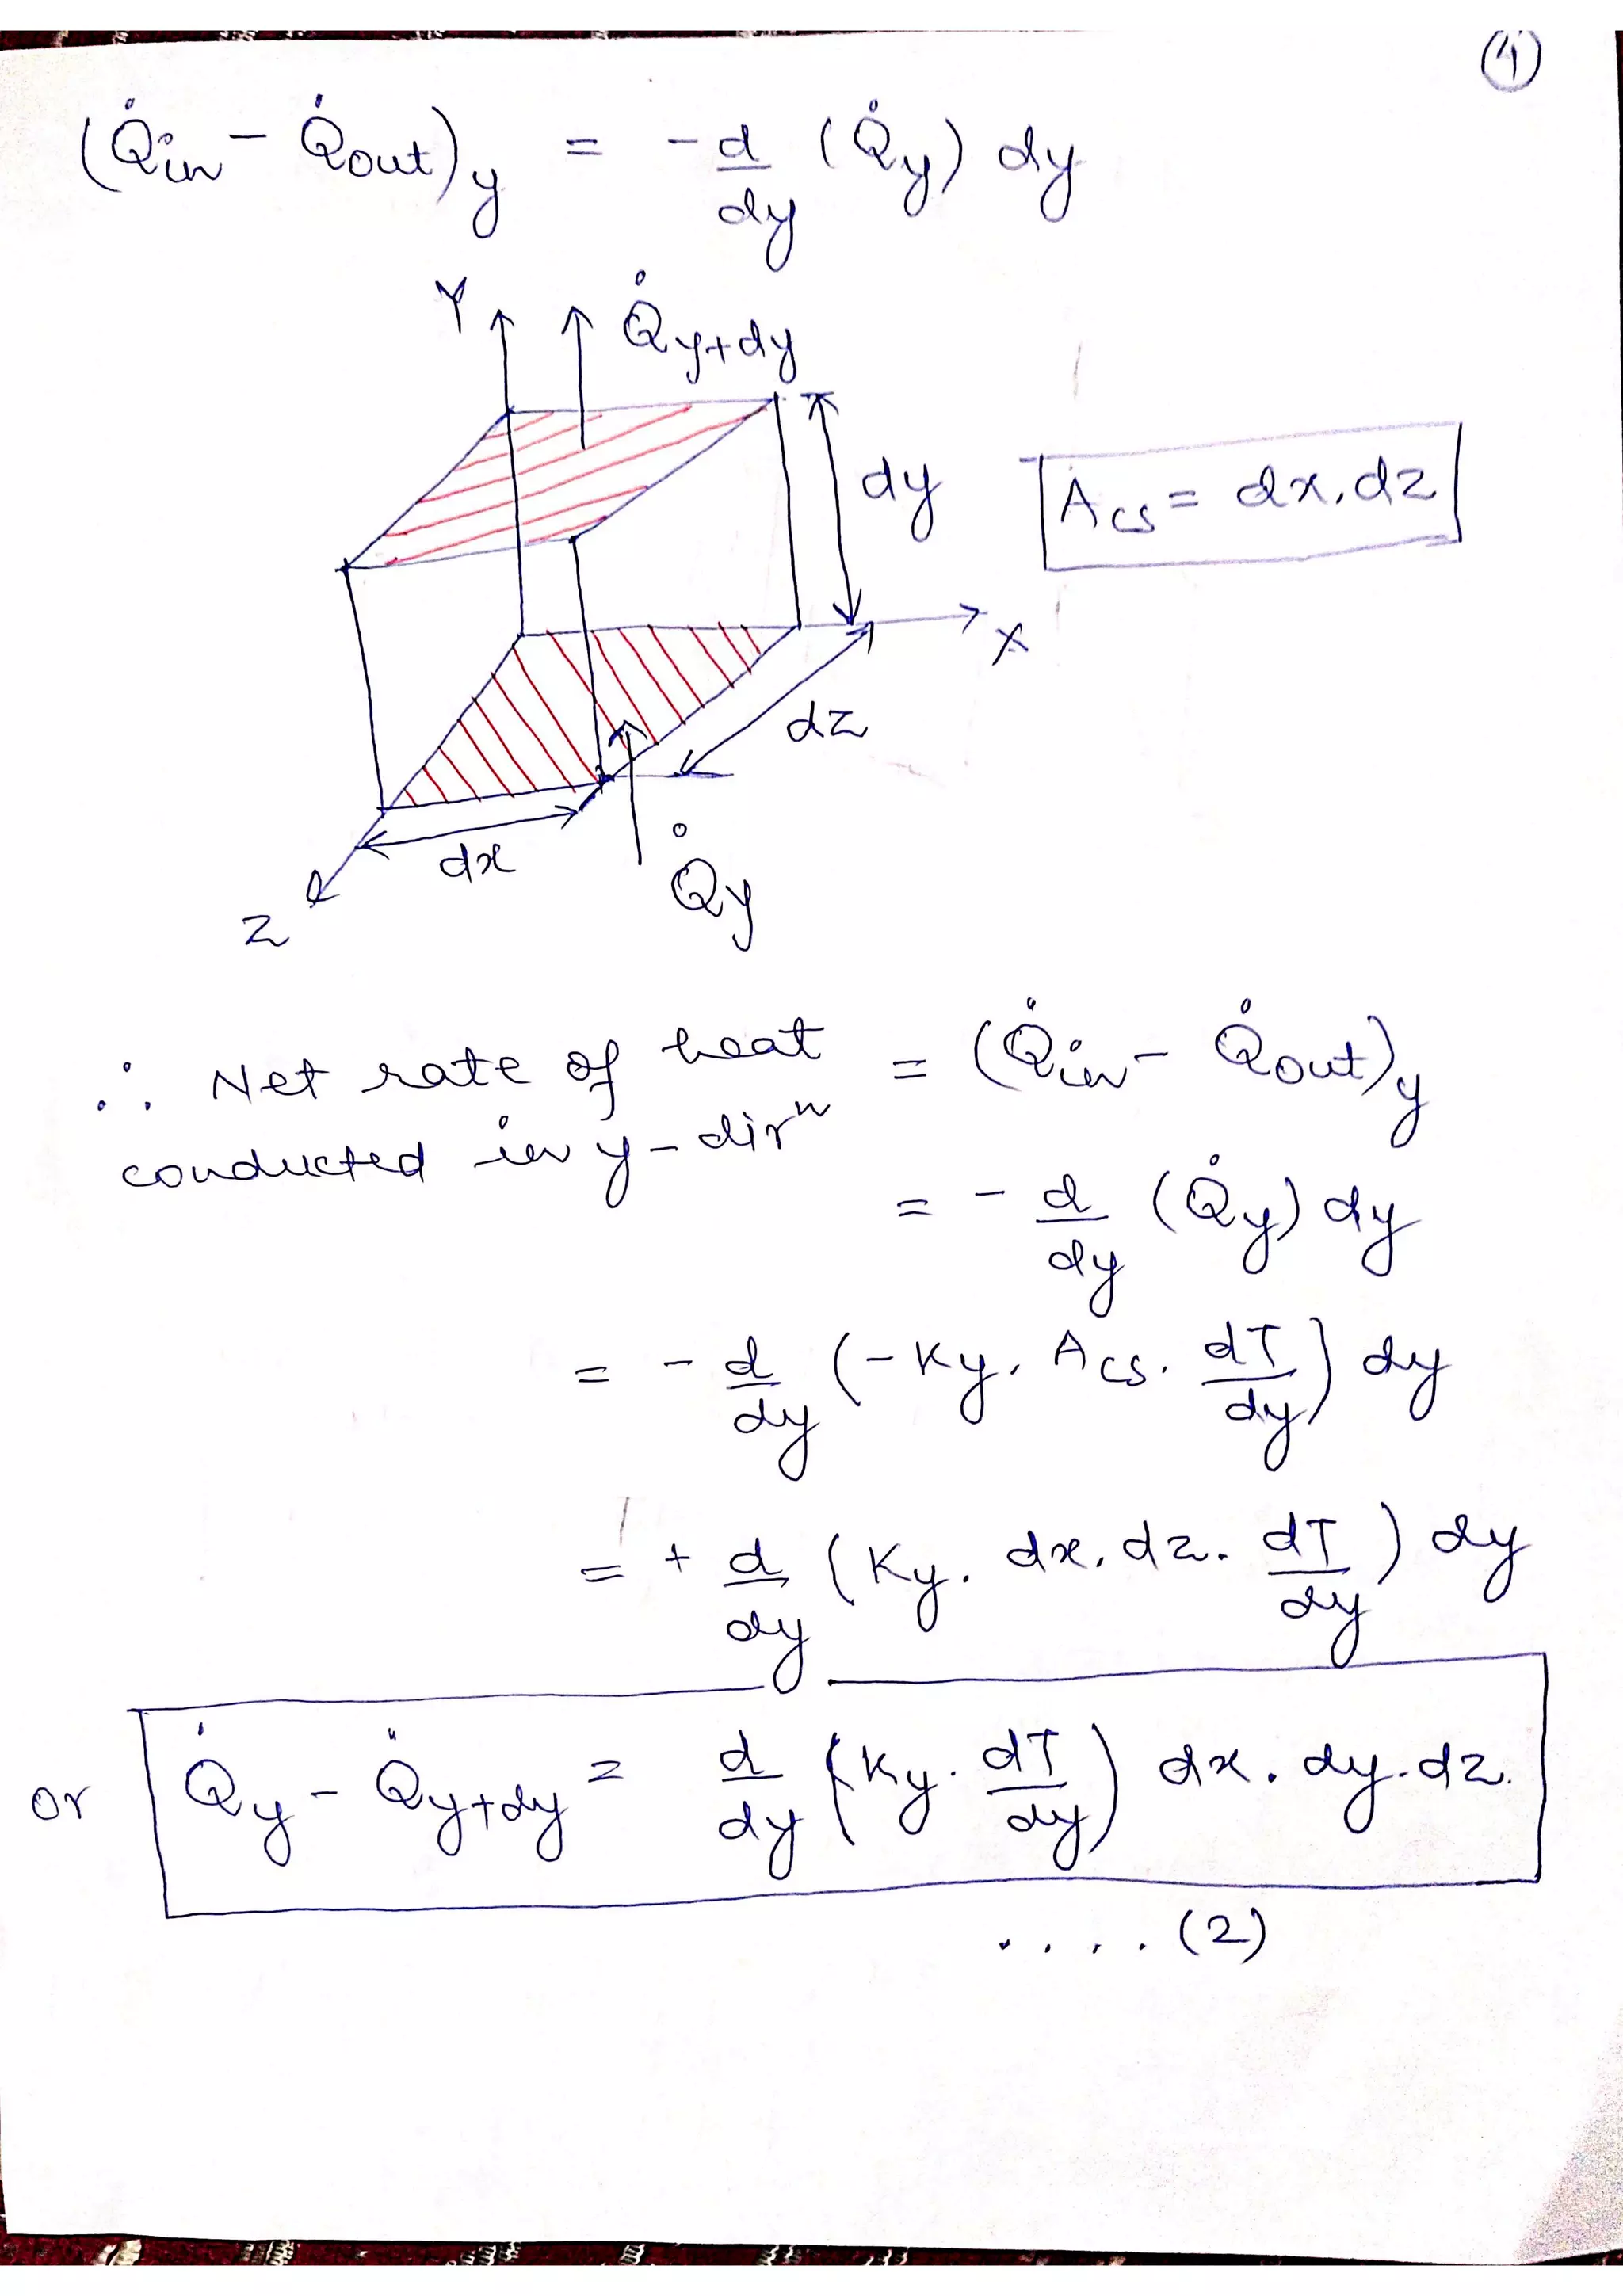 (4)
(Q̇in - Q̇out)y = - d/dy (Q̇y) dy
Y
Q̇y+dy
dy
Acs = dx.dz
X
dz
dx
Q̇y
Z
∴ Net rate of heat = (Q̇in - Q̇out)y
conducted in y-dirⁿ
= - d/dy (Q̇y) dy
= - d/dy (-Ky. Acs. dT/dy) dy
= + d/dy (Ky. dx. dz. dT/dy) dy
or Q̇y - Q̇y+dy = d/dy (Ky. dT/dy) dx. dy. dz.
.... (2)